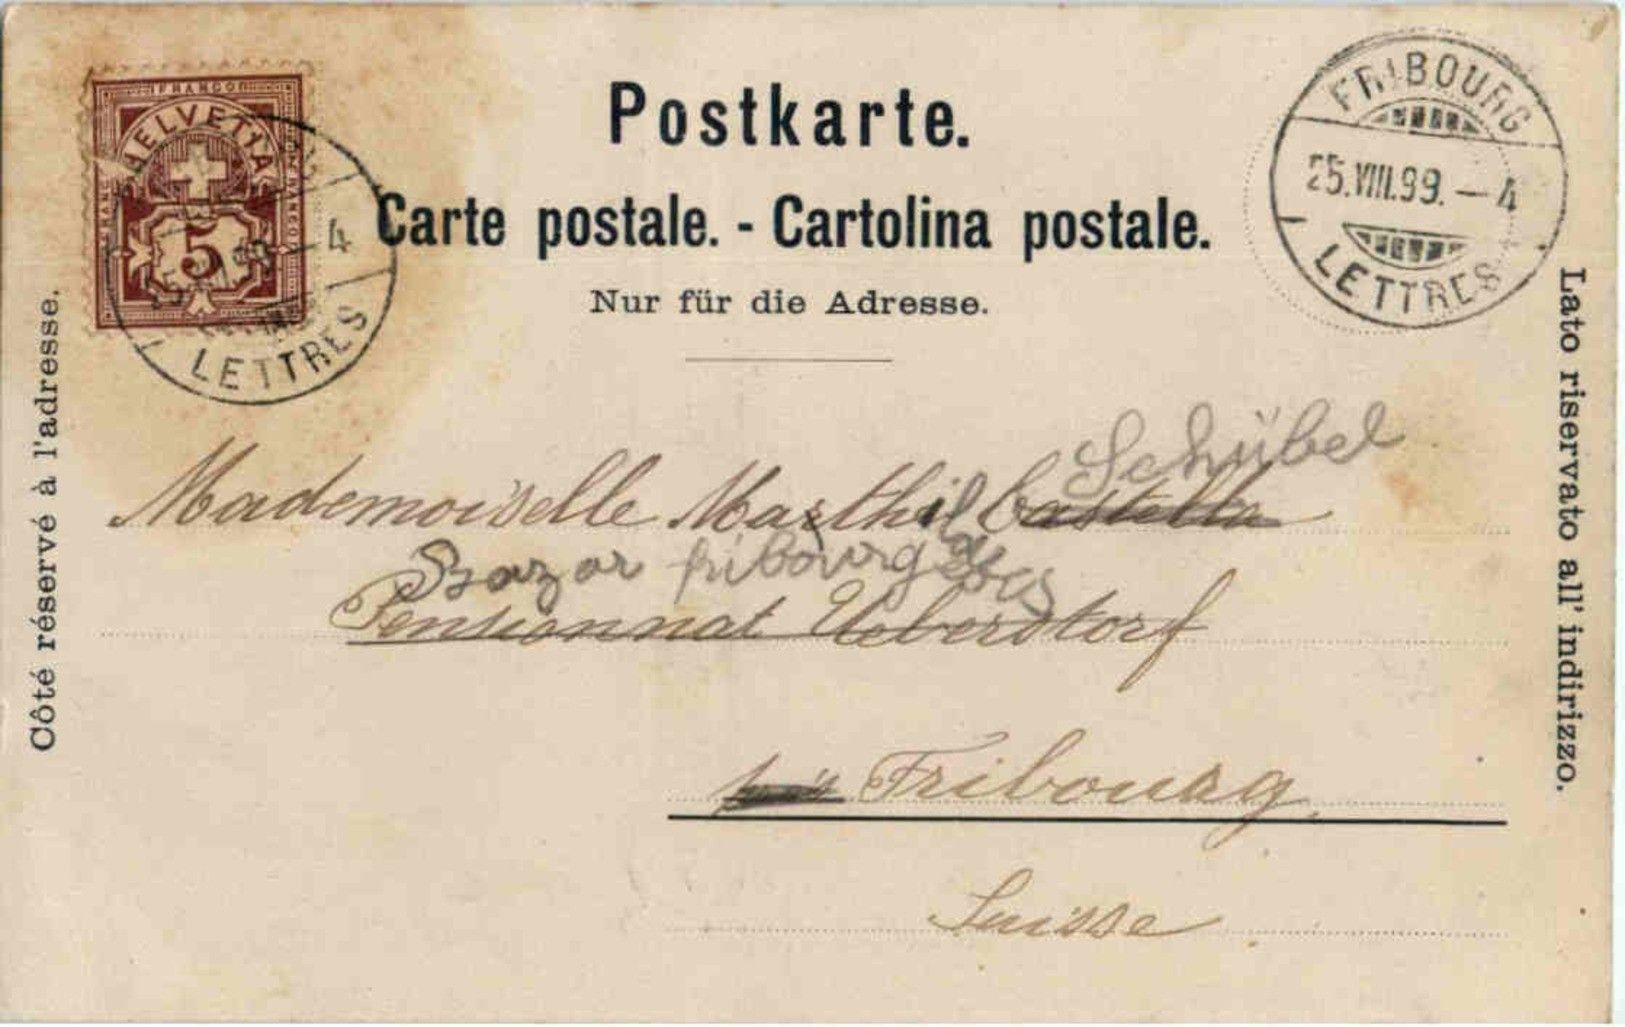 FRANCO
HELVETIA
5
LETTRES
4
Postkarte.
Carte postale. - Cartolina postale.
Nur für die Adresse.
FRIBOURG
25.VIII.99. – 4
LETTRES
Côté réservé à l'adresse.
Lato riservato all' indirizzo.
Schübel
Mademoiselle Marthil Castella
Bazar fribourgeois
Pensionnat Ueberstorf
Fribourg
Suisse